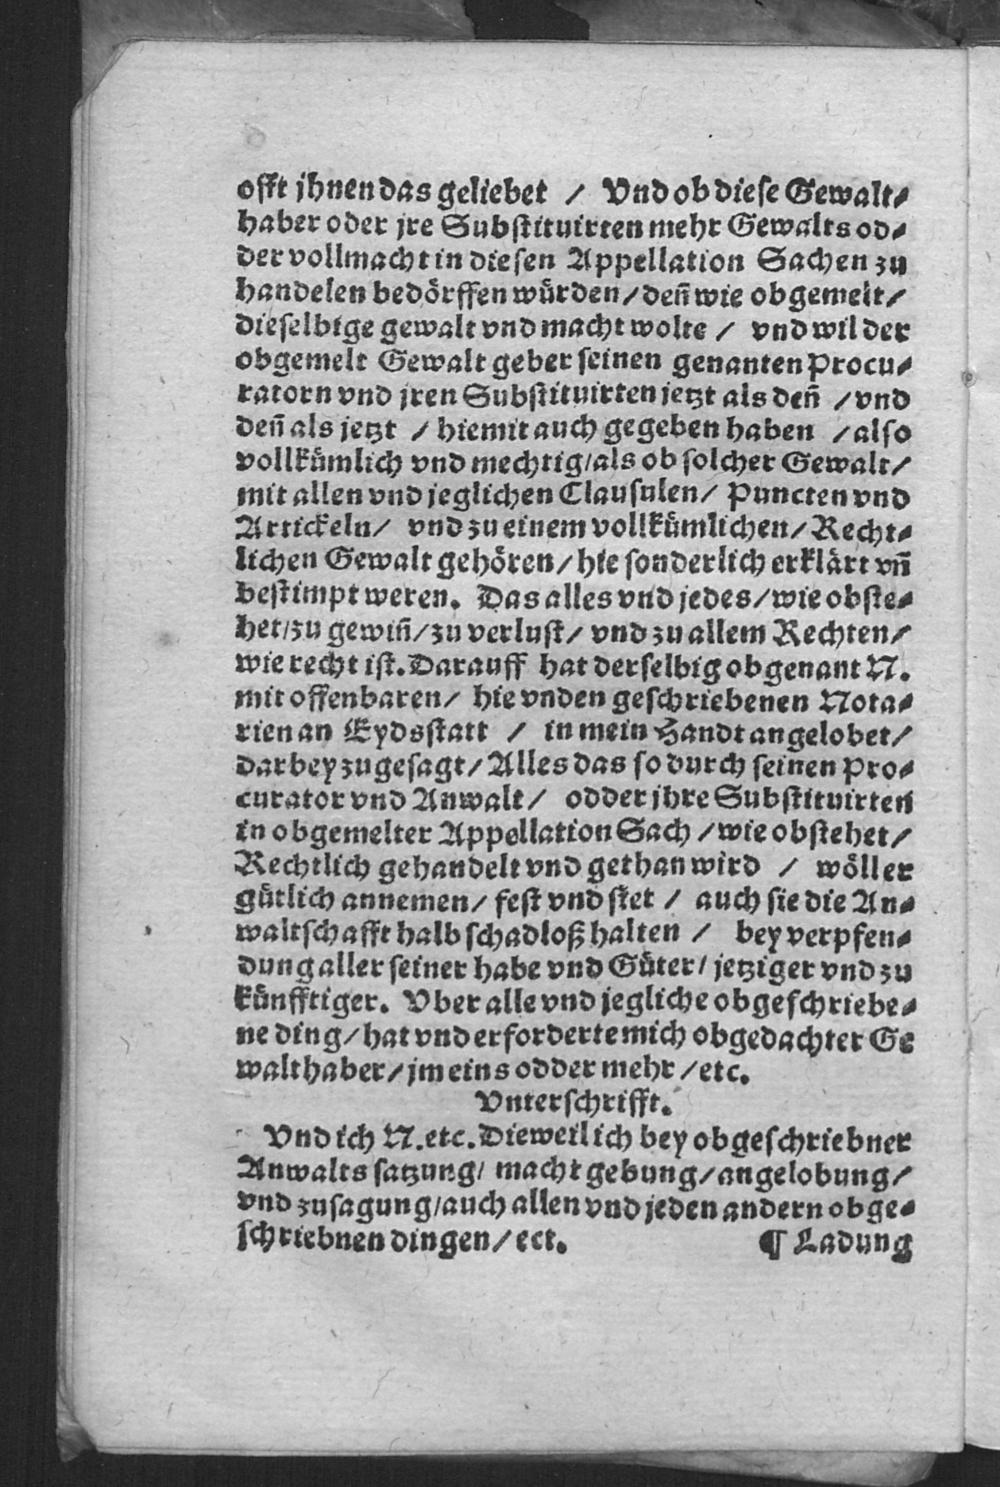 offt jhnen das geliebet / Vnd ob diese Gewalt⸗
haber oder jre Substituirten mehr Gewalts od⸗
der vollmacht in diesen Appellation Sachen zu
handelen bedörffen würden / deñ wie obgemelt /
dieselbige gewalt vnd macht wolte / vnd wil der
obgemelt Gewalt geber seinen genanten Procu⸗
ratorn vnd jren Substituirten jetzt als deñ / vnd
deñ als jetzt / hiemit auch gegeben haben / also
vollkümlich vnd mechtig / als ob solcher Gewalt /
mit allen vnd jeglichen Clausulen / Puncten vnd
Artickeln / vnd zu einem vollkümlichen / Recht⸗
lichen Gewalt gehören / hie sonderlich erklärt vñ
bestimpt weren. Das alles vnd jedes / wie obste⸗
het / zu gewiñ / zu verlust / vnd zu allem Rechten /
wie recht ist. Darauff hat derselbig obgenant N.
mit offenbaren / hie vnden geschriebenen Nota⸗
rien an Eydsstatt / in mein Handt angelobet /
darbey zugesagt / Alles das so durch seinen Pro⸗
curator vnd Anwalt / odder jhre Substituirten
in obgemelter Appellation Sach / wie obstehet /
Rechtlich gehandelt vnd gethan wird / wöller
gütlich annemen / fest vnd stet / auch sie die An⸗
waltschafft halb schadloß halten / bey verpfen⸗
dung aller seiner habe vnd Güter / jetziger vnd zu
künfftiger. Vber alle vnd jegliche obgeschriebe⸗
ne ding / hat vnd erforderte mich obgedachter Ge
walthaber / jm eins odder mehr / etc.
Vnterschrifft.
Vnd ich N. etc. Dieweil ich bey obgeschriebner
Anwalts satzung / macht gebung / angelobung /
vnd zusagung / auch allen vnd jeden andern obge⸗
schriebnen dingen / ect. ¶ Ladung